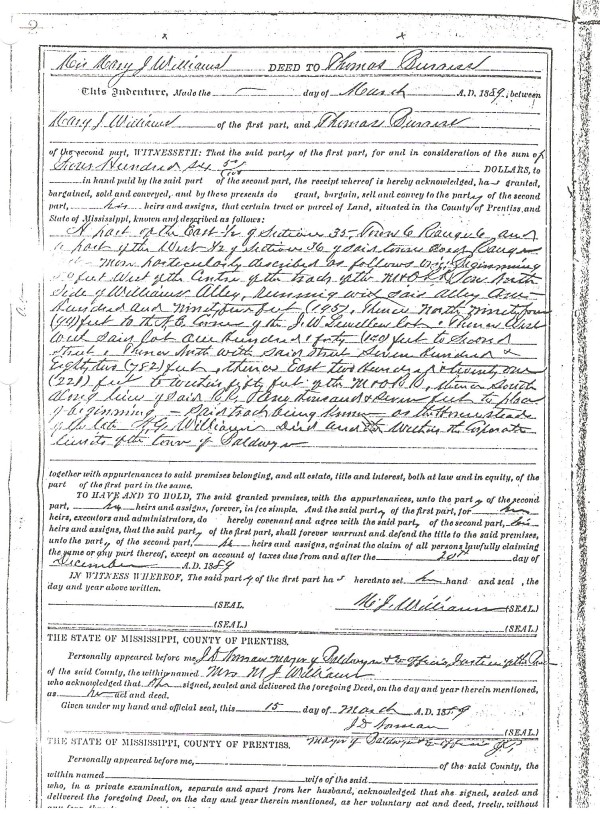 Mrs Mary J Williams DEED TO Thomas Burress
This Indenture, Made the — day of March A.D. 1889, between
Mary J Williams of the first part, and Thomas Burress
of the second part, WITNESSETH: That the said party of the first part, for and in consideration of the sum of
Four Hundred Six 50/100 DOLLARS, to
in hand paid by the said part of the second part, the receipt whereof is hereby acknowledged, has granted,
bargained, sold and conveyed, and by these presents do grant, bargain, sell and convey to the party of the second
part, his heirs and assigns, that certain tract or parcel of Land, situated in the County of Prentiss, and
State of Mississippi, known and described as follows:
A part of the East 1/2 of Section 35 Town 6 Range 6 and
a part of the West 1/2 of Section 36 of said town and Range
more particularly described as follows viz; Beginning
feet West of the Centre of the track of the M & O R R on North
Side of Williams Alley, running with said Alley One
hundred and ninety five feet (195), thence North ninety four
(94) feet to the N.E. Corner of the J.W. Lewellen lot, thence West
with said lot one hundred & forty (140) feet to Second
Street, thence North with said Street Seven hundred &
Eighty two (782) feet, thence East two hundred & twenty one
(221) feet to within fifty feet of the M & O R R, thence South
along line of said R.R. thousand & seven feet to place
of beginning — Said tract being known as the Homestead
of the late Williams Decd and within the Corporate
limits of the town of Baldwyn
together with appurtenances to said premises belonging, and all estate, title and interest, both at law and in equity, of the
part of the first part in the same.
TO HAVE AND TO HOLD, The said granted premises, with the appurtenances, unto the party of the second
part, his heirs and assigns, forever, in fee simple. And the said party of the first part, for her
heirs, executors and administrators, do hereby covenant and agree with the said party of the second part, his
heirs and assigns, that the said party of the first part, shall forever warrant and defend the title to the said premises,
unto the party of the second part, his heirs and assigns, against the claim of all persons lawfully claiming
the same or any part thereof, except on account of taxes due from and after the 20th day of
December A.D. 1889
IN WITNESS WHEREOF, The said party of the first part has hereunto set her hand and seal, the
day and year above written.
(SEAL. M. J. Williams (SEAL.)
(SEAL. (SEAL.)
THE STATE OF MISSISSIPPI, COUNTY OF PRENTISS.
Personally appeared before me, J D Norman Mayor of Baldwyn & Ex Officio Justice of the Peace
of the said County, the within named Mrs M J Williams
who acknowledged that She signed, sealed and delivered the foregoing Deed, on the day and year therein mentioned,
as her act and deed.
Given under my hand and official seal, this 15 day of March A.D. 1889
J D Norman (SEAL)
Mayor of Baldwyn & Ex Officio J.P.
THE STATE OF MISSISSIPPI, COUNTY OF PRENTISS.
Personally appeared before me, of the said County, the
within named wife of the said
who, in a private examination, separate and apart from her husband, acknowledged that she signed, sealed and
delivered the foregoing Deed, on the day and year therein mentioned, as her voluntary act and deed, freely, without